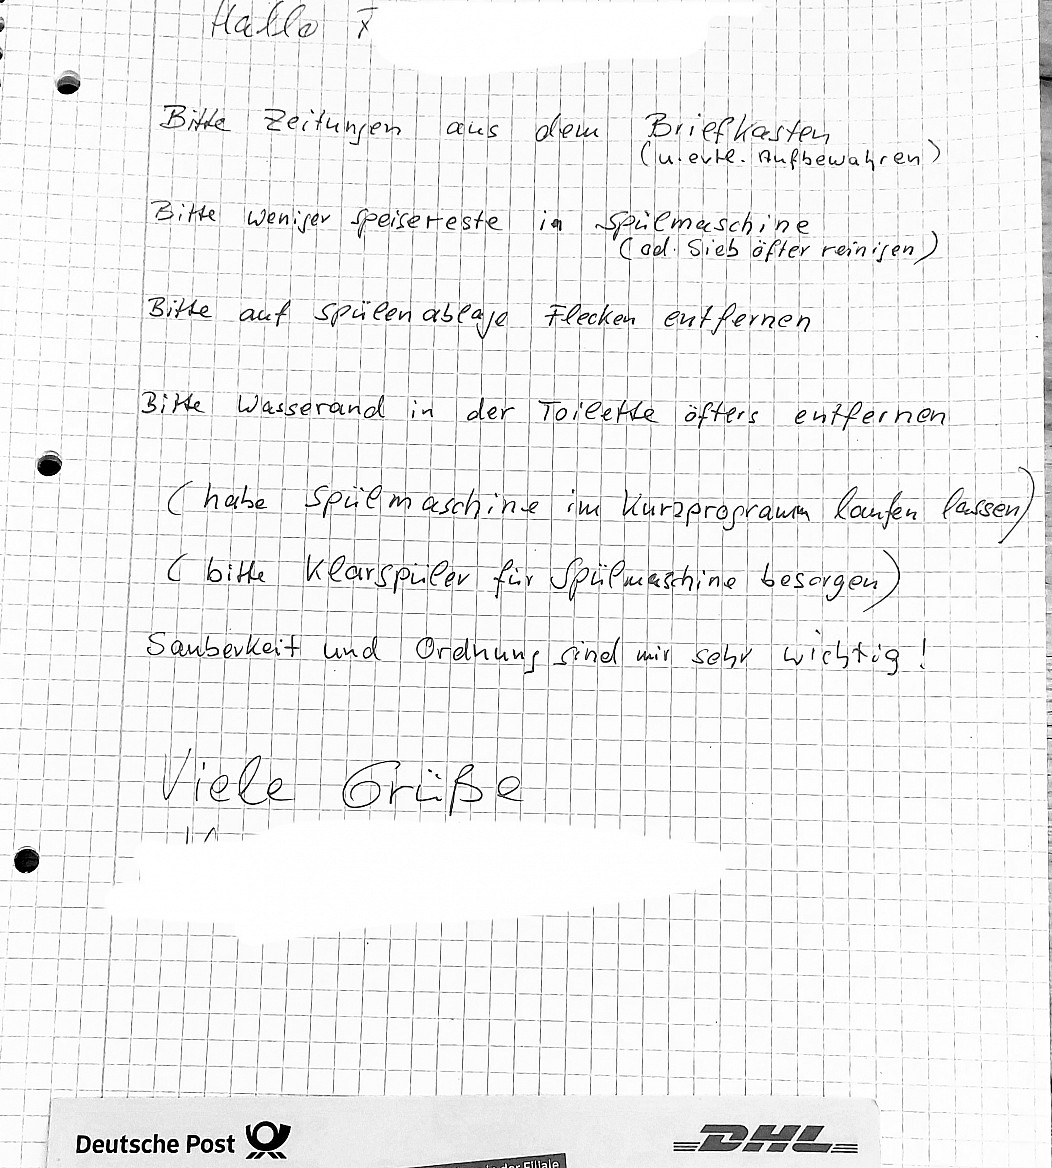 Hallo
Bitte Zeitungen aus dem Briefkasten
(u. evtl. Aufbewahren)
Bitte weniger Speisereste in Spülmaschine
(od. Sieb öfter reinigen)
Bitte auf Spülenablage Flecken entfernen
Bitte Wasserand in der Toilette öfters entfernen
(habe Spülmaschine im Kurzprogramm laufen lassen)
(bitte Klarspüler für Spülmaschine besorgen)
Sauberkeit und Ordnung sind mir sehr wichtig!
Viele Grüße
Deutsche Post DHL
der Filiale